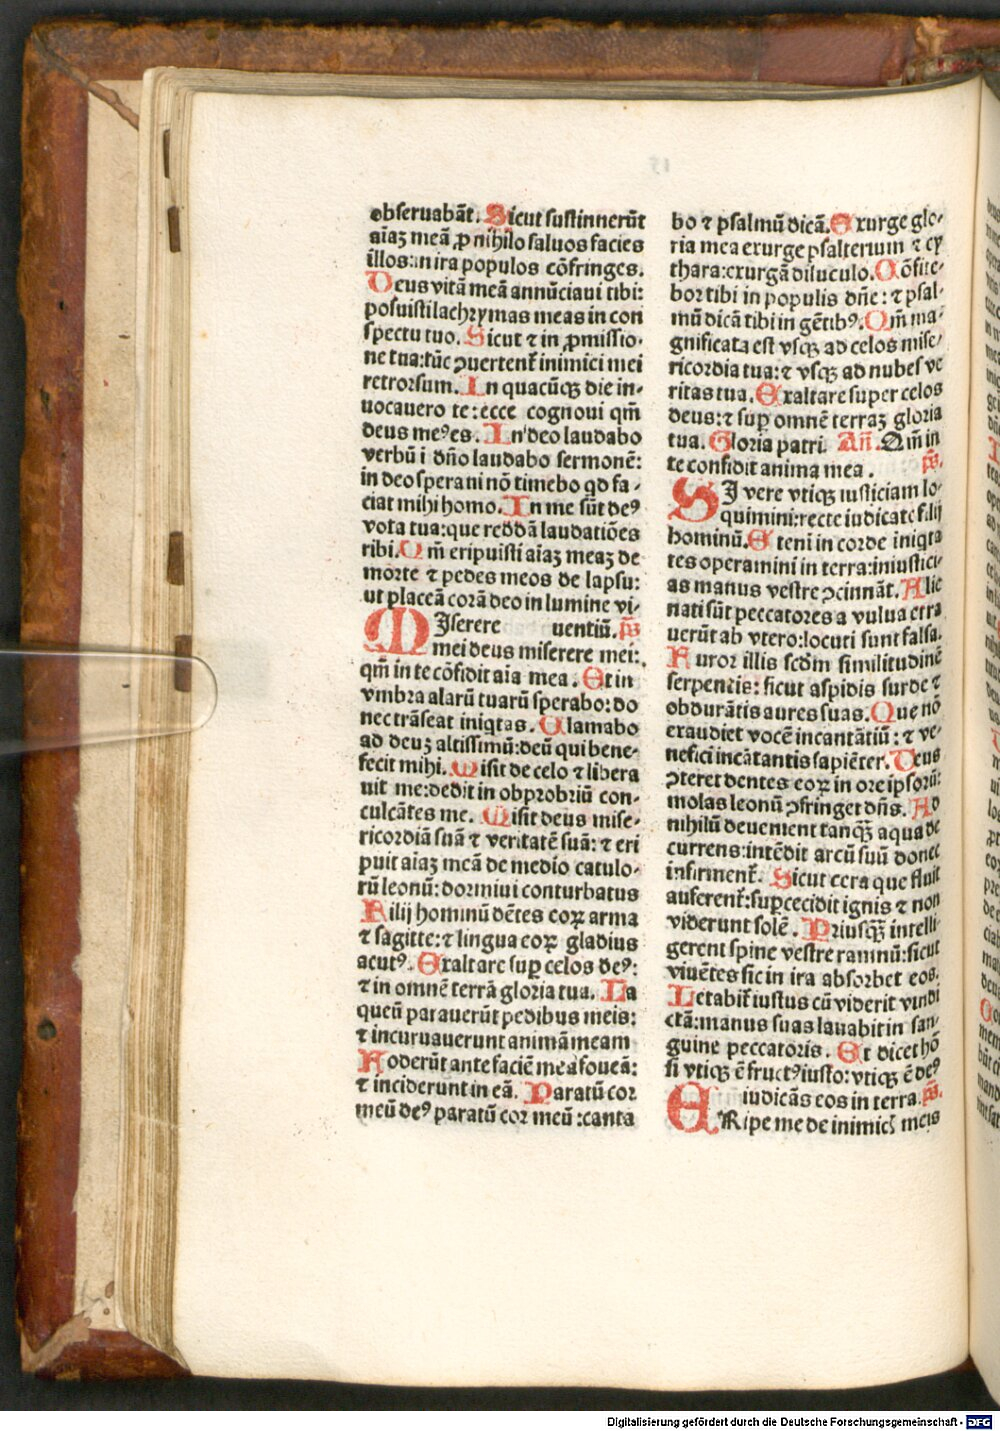 obseruabãt. Sicut sustinnerũt
aiaꝫ meã ꝓ nihilo saluos facies
illos: in ira populos cõfringes.
Deus vitã meã annũciaui tibi:
posuisti lachrymas meas in con
spectu tuo. Sicut ⁊ in ꝓmissio-
ne tua: tũc ꝯuertent̃ inimici mei
retrorsum. In quacũqꝫ die in-
uocauero te: ecce cognoui qm̃
deus meꝰ es. In deo laudabo
verbũ i dño laudabo sermonẽ:
in deo speraui nõ timebo qd fa-
ciat mihi homo. In me sũt deꝰ
vota tua: que reddã laudatiões
tibi. Qm̃ eripuisti aiaꝫ meaꝫ de
morte ⁊ pedes meos de lapsu:
ut placeã corã deo in lumine vi-
MIserere uentiũ. ps̃
mei deus miserere mei:
qm̃ in te cõfidit aia mea. Et in
vmbra alarũ tuarũ sperabo: do
nec trãseat iniqtas. Clamabo
ad deuꝫ altissimũ: deũ qui bene-
fecit mihi. Misit de celo ⁊ libera
uit me: dedit in obprobriũ con-
culcãtes me. Misit deus mise-
ricordiã suã ⁊ veritatẽ suã: ⁊ eri
puit aiaꝫ meã de medio catulo-
rũ leonũ: dormiui conturbatus
Filij hominũ dẽtes eoꝝ arma
⁊ sagitte: ⁊ lingua eoꝝ gladius
acutꝰ. Exaltare suꝑ celos deꝰ:
⁊ in omnẽ terrã gloria tua. La
queũ parauerũt pedibus meis:
⁊ incuruauerunt animã meam
Foderũt ante faciẽ meã foueã:
⁊ inciderunt in eã. Paratũ cor
meũ deꝰ paratũ cor meũ: canta
bo ⁊ psalmũ dicã. Exurge glo-
ria mea exurge psalterium ⁊ cy
thara: exurgã diluculo. Cõfite-
bor tibi in populis dñe: ⁊ psal-
mũ dicã tibi in gẽtibꝰ. Qm̃ ma-
gnificata est vsqꝫ ad celos mise-
ricordia tua: ⁊ vsqꝫ ad nubes ve
ritas tua. Exaltare super celos
deus: ⁊ suꝑ omnẽ terraꝫ gloria
tua. Gloria patri. Añ. Qm̃ in
te confidit anima mea. ps̃.
SI vere vtiqꝫ iusticiam lo-
quimini: recte iudicate filij
hominũ. Eteni in corde iniqta
tes operamini in terra: iniustici-
as manus vestre ꝯcinnãt. Alie
nati sũt peccatores a vulua erra
uerũt ab vtero: locuti sunt falsa.
Furor illis scdm̃ similitudinẽ
serpentis: sicut aspidis surde ⁊
obdurãtis aures suas. Que nõ
exaudiet vocẽ incantãtiũ: ⁊ ve-
nefici incãtantis sapiẽter. Deus
ꝯteret dentes eoꝝ in ore ipsorũ:
molas leonũ ꝯfringet dñs. Ad
nihilũ deuenient tanqꝫ aqua de
currens: intẽdit arcũ suũ donec
infirment̃. Sicut cera que fluit
auferent̃: suꝑcecidit ignis ⁊ non
viderunt solẽ. Priusqꝫ intelli-
gerent spine vestre ramnũ: sicut
viuẽtes sic in ira absorbet eos.
Letabit̃ iustus cũ viderit vindi
ctã: manus suas lauabit in san-
guine peccatoris. Et dicet hõ
si vtiqꝫ ẽ fructꝰ iusto: vtiqꝫ ẽ deꝰ
iudicãs eos in terra. ps̃.
ERipe me de inimicꝭ meis
Digitalisierung gefördert durch die Deutsche Forschungsgemeinschaft - DFG